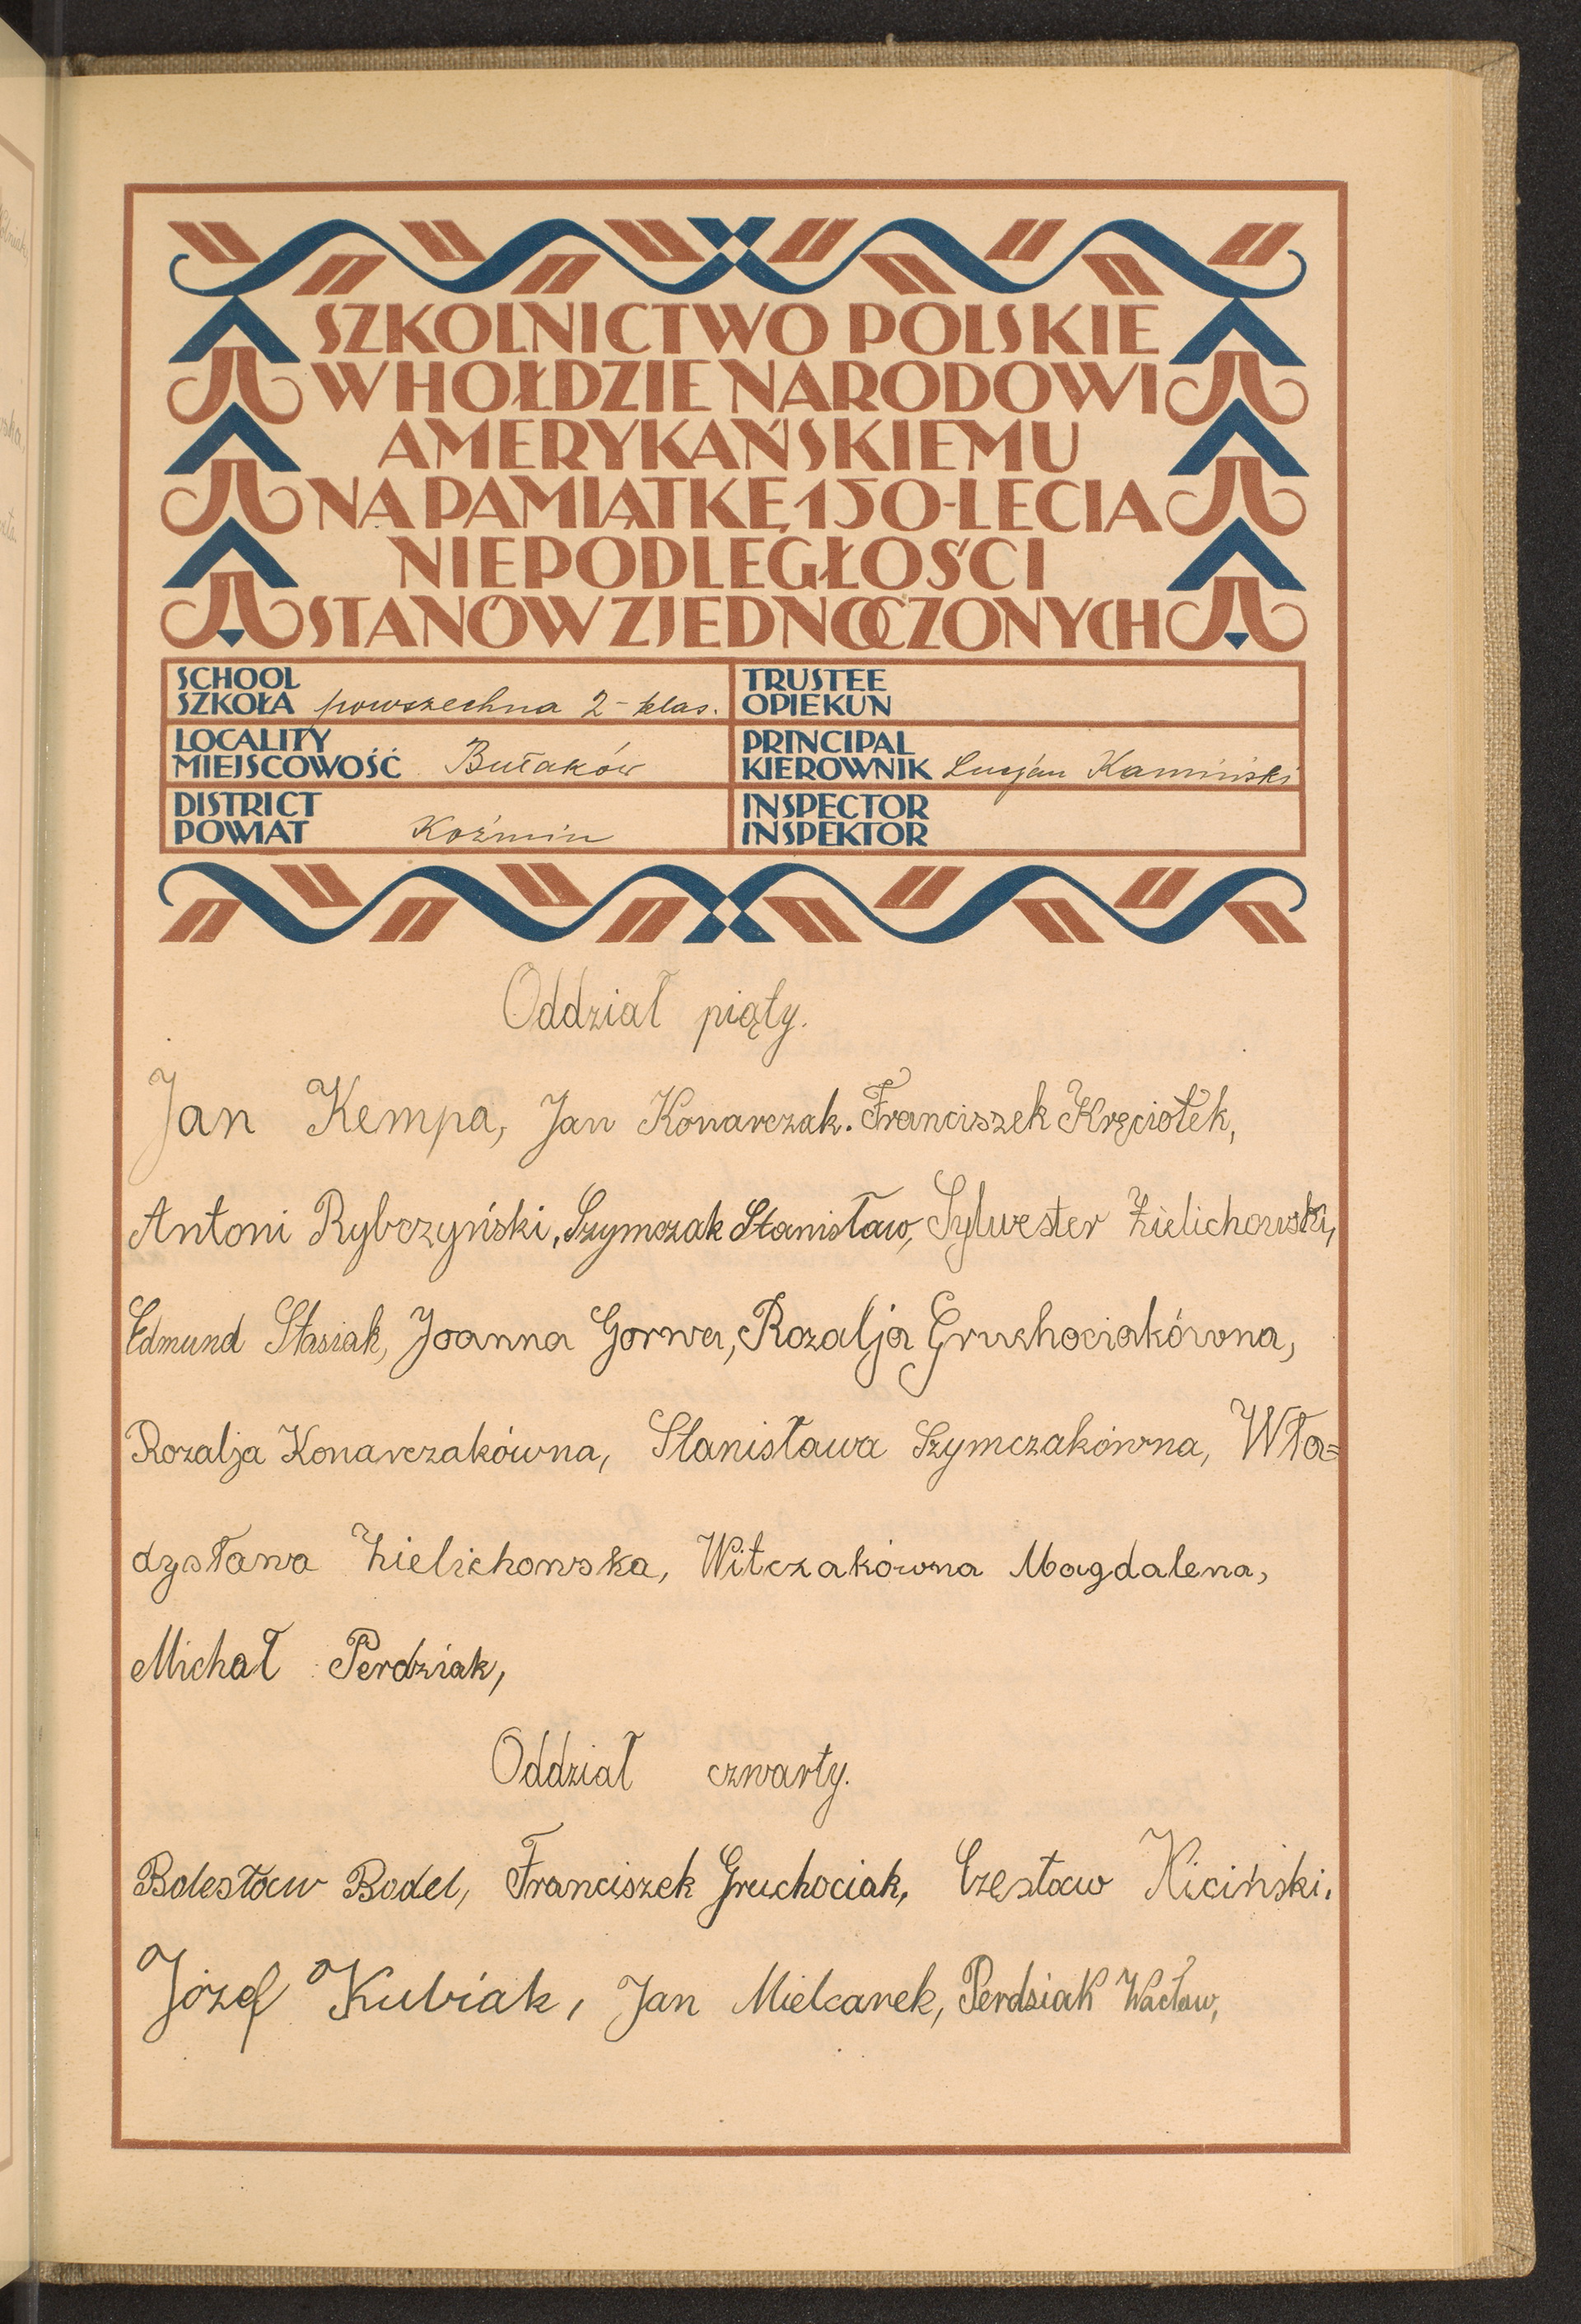 SZKOLNICTWO POLSKIE
W HOŁDZIE NARODOWI
AMERYKAŃSKIEMU
NA PAMIĄTKĘ 150-LECIA
NIEPODLEGŁOŚCI
STANÓW ZJEDNOCZONYCH
SCHOOL
SZKOŁA powszechna 2-klas.
TRUSTEE
OPIEKUN
LOCALITY
MIEJSCOWOŚĆ Bułaków
PRINCIPAL
KIEROWNIK Lucjan Kamiński
DISTRICT
POWIAT Koźmin
INSPECTOR
INSPEKTOR
Oddział piąty.
Jan Kempa, Jan Konarczak. Franciszek Kręciołek,
Antoni Rybczyński, Szymczak Stanisław, Sylwester Zielichowski,
Edmund Stasiak, Joanna Gorwa, Rozalja Gruchociakówna,
Rozalja Konarczakówna, Stanisława Szymczakówna, Wła=
dysława Zielichowska, Witczakówna Magdalena,
Michał Perdziak,
Oddział czwarty.
Bolesław Bodel, Franciszek Gruchociak, Czesław Kiciński.
Józef Kubiak, Jan Mielcarek, Perdziak Wacław,